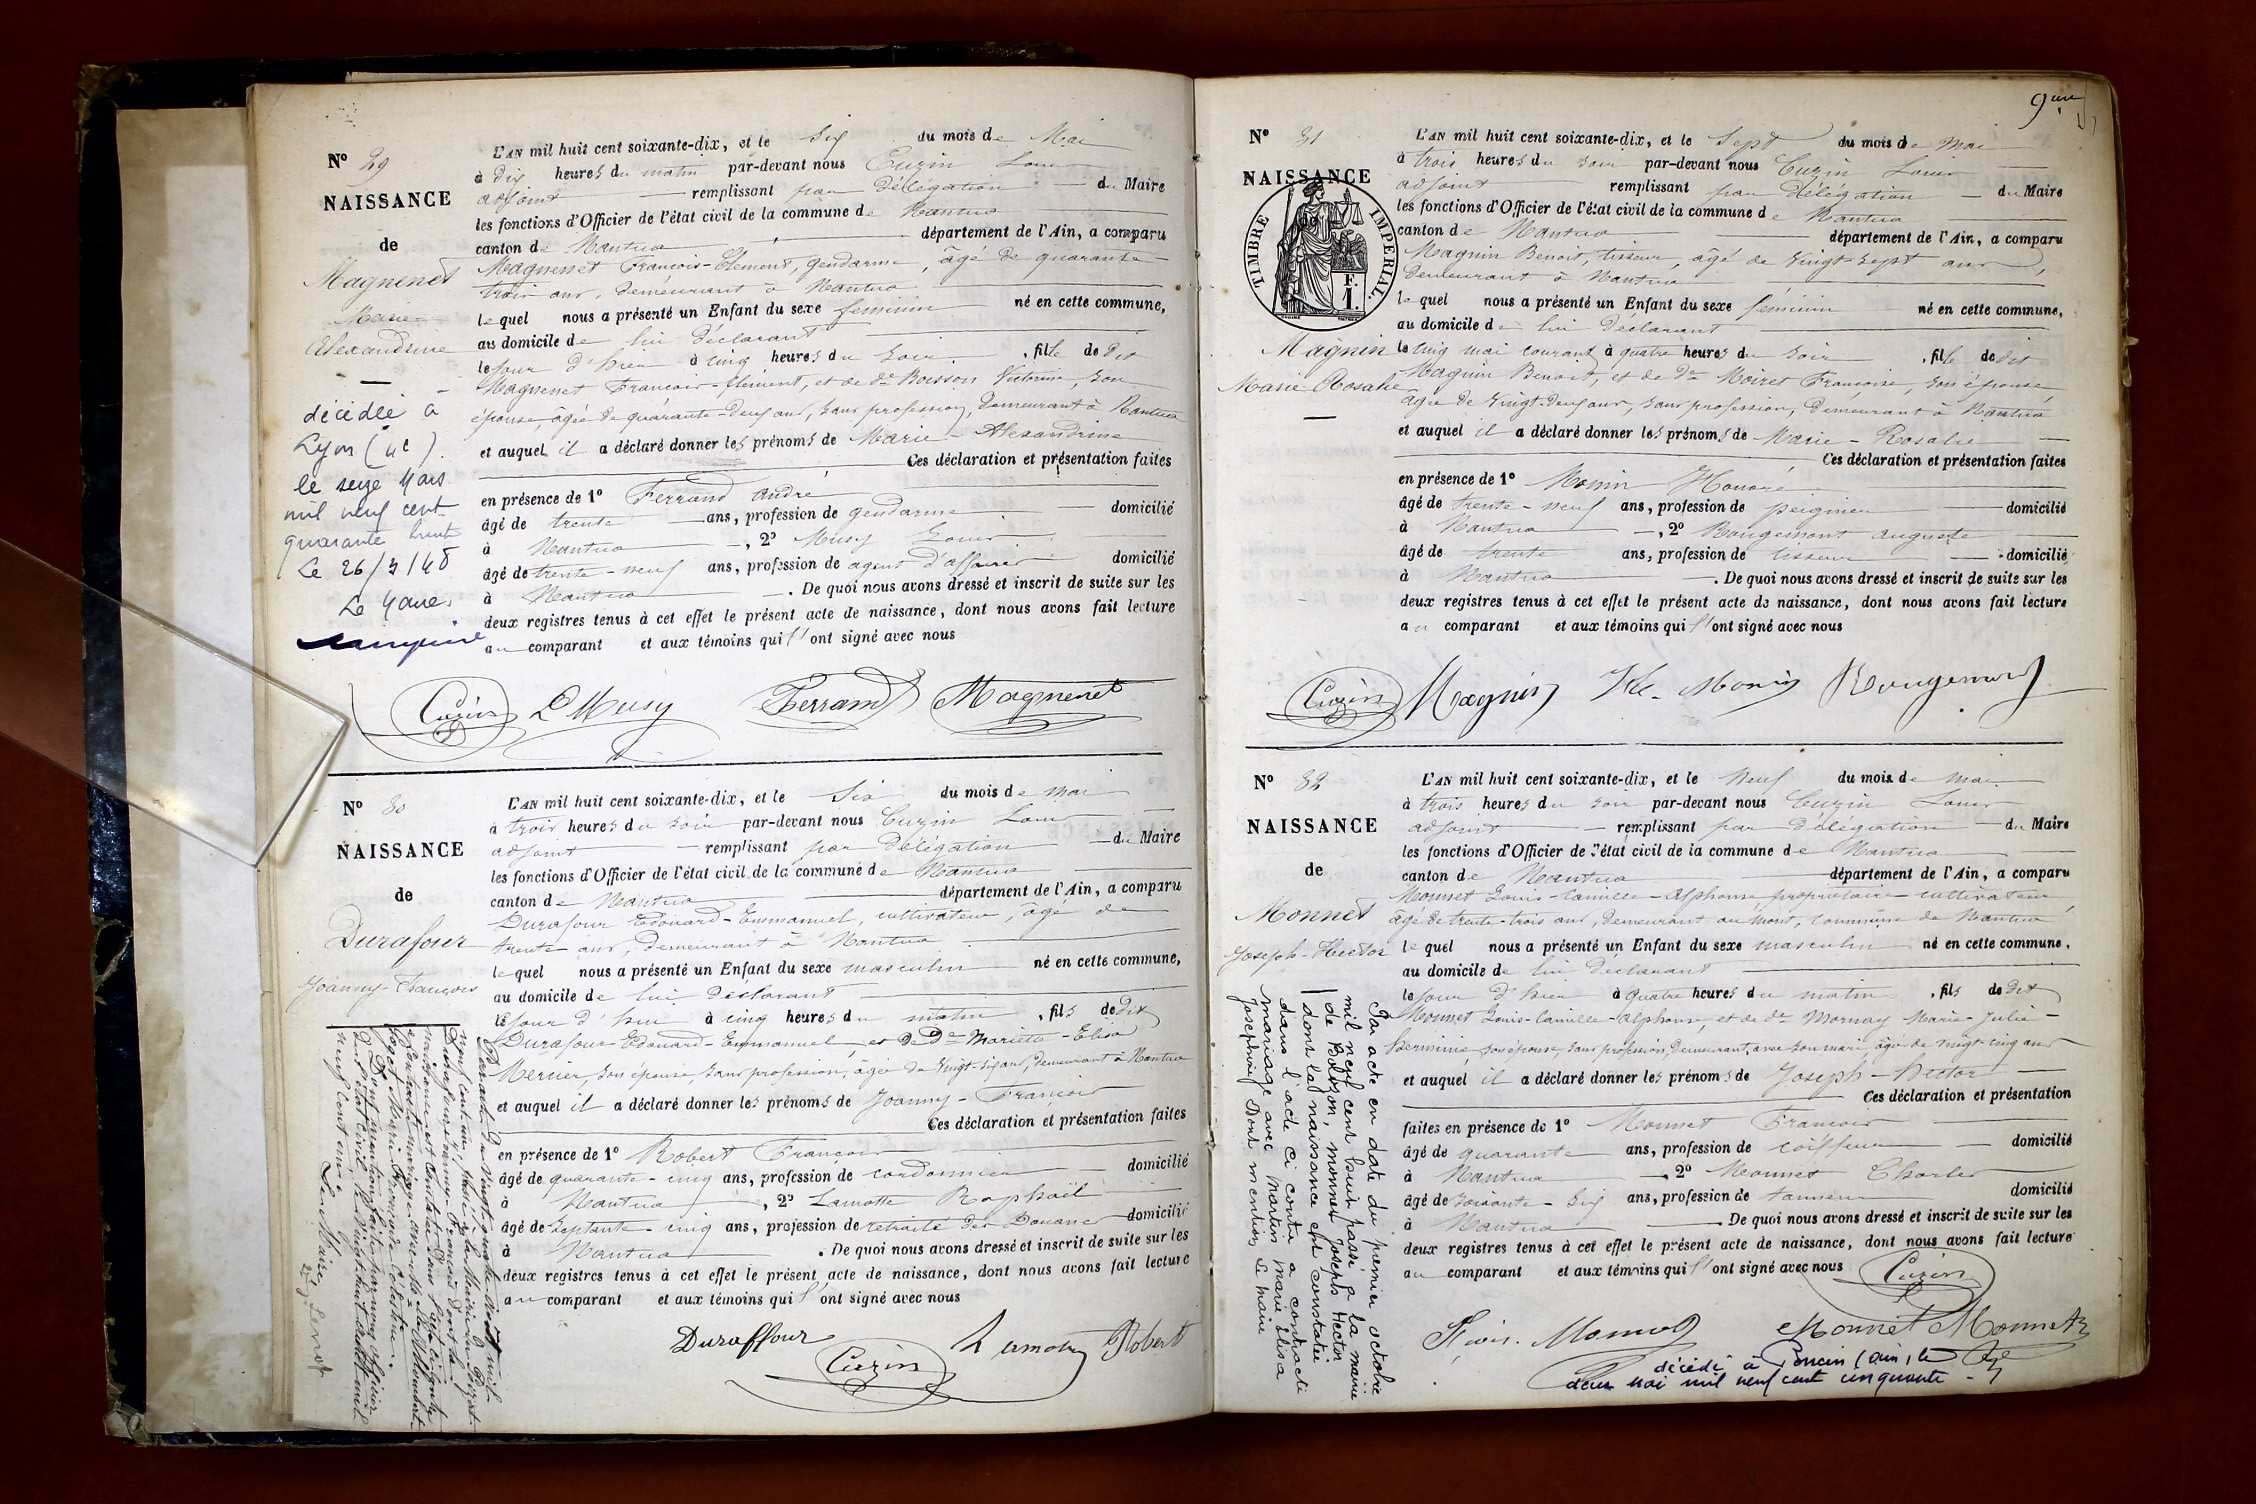 N° 29
NAISSANCE
de
Magnenet
Marie
Alexandrine
décédée à
Lyon (4e)
le seize Mars
mil neuf cent
quarante huit
Le 26/3/48
Le Maire,
L'AN mil huit cent soixante-dix, et le six du mois de Mai
à dix heures du matin par-devant nous Cuzin Louis
adjoint remplissant par délégation du Maire
les fonctions d'Officier de l'état civil de la commune de Nantua
canton de Nantua département de l'Ain, a comparu
Magnenet François-Clément, gendarme, âgé de quarante-
trois ans, demeurant à Nantua
lequel nous a présenté un Enfant du sexe féminin né en cette commune,
au domicile de lui déclarant
le jour d'hier à cinq heures du soir, fille de dit
Magnenet François-Clément, et de de Boisson Victorine, son
épouse, âgée de quarante-deux ans, sans profession, demeurant à Nantua
et auquel il a déclaré donner les prénoms de Marie-Alexandrine
Ces déclaration et présentation faites
en présence de 1° Ferrand André
âgé de trente ans, profession de gendarme domicilié
à Nantua, 2° Musy Louis
âgé de trente-neuf ans, profession de agent d'affaires domicilié
à Nantua. De quoi nous avons dressé et inscrit de suite sur les
deux registres tenus à cet effet le présent acte de naissance, dont nous avons fait lecture
au comparant et aux témoins qui l'ont signé avec nous
Cuzin L Musy Ferrand Magnenet
N° 30
NAISSANCE
de
Durafour
Joanny-François
L'AN mil huit cent soixante-dix, et le six du mois de mai
à trois heures du soir par-devant nous Cuzin Louis
adjoint remplissant par délégation du Maire
les fonctions d'Officier de l'état civil de la commune de Nantua
canton de Nantua département de l'Ain, a comparu
Durafour Edouard-Emmanuel, cultivateur, âgé de
trente ans, demeurant à Nantua
lequel nous a présenté un Enfant du sexe masculin né en cette commune,
au domicile de lui déclarant
le jour d'hier à cinq heures du matin, fils de dit
Durafour Edouard-Emmanuel, et de De Mariette-Elisa
Mercier, son épouse, sans profession, âgée de vingt-six ans, demeurant à Nantua
et auquel il a déclaré donner les prénoms de Joanny-François
Ces déclaration et présentation faites
en présence de 1° Robert François
âgé de quarante-cinq ans, profession de cordonnier domicilié
à Nantua, 2° Lamotte Raphaël
âgé de septante-cinq ans, profession de retraité des Douanes domicilié
à Nantua. De quoi nous avons dressé et inscrit de suite sur les
deux registres tenus à cet effet le présent acte de naissance, dont nous avons fait lecture
au comparant et aux témoins qui l'ont signé avec nous
Duraffour Cuzin Lamotte Robert
Le Maire,
9
N° 31
NAISSANCE
de
TIMBRE IMPERIAL.
1 F.
Magnin
Marie Rosalie
L'AN mil huit cent soixante-dix, et le sept du mois de mai
à trois heures du soir par-devant nous Cuzin Louis
adjoint remplissant par délégation du Maire
les fonctions d'Officier de l'état civil de la commune de Nantua
canton de Nantua département de l'Ain, a comparu
Magnin Benoit, tisseur, âgé de vingt-sept ans,
demeurant à Nantua
lequel nous a présenté un Enfant du sexe féminin né en cette commune,
au domicile de lui déclarant
le cinq mai courant à quatre heures du soir, fille de dit
Magnin Benoit, et de de Moiret Françoise, son épouse
âgée de vingt-deux ans, sans profession, demeurant à Nantua
et auquel il a déclaré donner les prénoms de Marie-Rosalie
Ces déclaration et présentation faites
en présence de 1° Monin Honoré
âgé de trente-neuf ans, profession de peignier domicilié
à Nantua, 2° Rougemont Auguste
âgé de trente ans, profession de tisseur domicilié
à Nantua. De quoi nous avons dressé et inscrit de suite sur les
deux registres tenus à cet effet le présent acte de naissance, dont nous avons fait lecture
au comparant et aux témoins qui l'ont signé avec nous
Cuzin Magnin Monin Rougemont
N° 32
NAISSANCE
de
Monnet
Joseph-Hector
Par acte en date du premier octobre
mil neuf cent huit passé à la mairie
de Bolozon, Monnet Joseph Hector
dont la naissance est constatée
dans l'acte ci contre a contracté
mariage avec Martin Marie Elisa
Josephine Dont mention Le Maire
L'AN mil huit cent soixante-dix, et le neuf du mois de mai
à trois heures du soir par-devant nous Cuzin Louis
adjoint remplissant par délégation du Maire
les fonctions d'Officier de l'état civil de la commune de Nantua
canton de Nantua département de l'Ain, a comparu
Monnet Louis-Camille-Alphonse propriétaire-cultivateur
âgé de trente-trois ans, demeurant au Mont, commune de Nantua
lequel nous a présenté un Enfant du sexe masculin né en cette commune,
au domicile de lui déclarant
le jour d'hier à quatre heures du matin, fils de dit
Monnet Louis-Camille-Alphonse, et de de Mornay Marie-Julie-
herminie son épouse, sans profession, demeurant avec son mari, âgée de vingt-cinq ans
et auquel il a déclaré donner les prénoms de Joseph-Hector
Ces déclaration et présentation
faites en présence de 1° Monnet François
âgé de quarante ans, profession de coiffeur domicilié
à Nantua, 2° Monnet Charles
âgé de soixante-six ans, profession de tanneur domicilié
à Nantua. De quoi nous avons dressé et inscrit de suite sur les
deux registres tenus à cet effet le présent acte de naissance, dont nous avons fait lecture
au comparant et aux témoins qui l'ont signé avec nous Cuzin
Monnet Monnet
décédé à Poncin (Ain) le
deux mai mil neuf cent cinquante